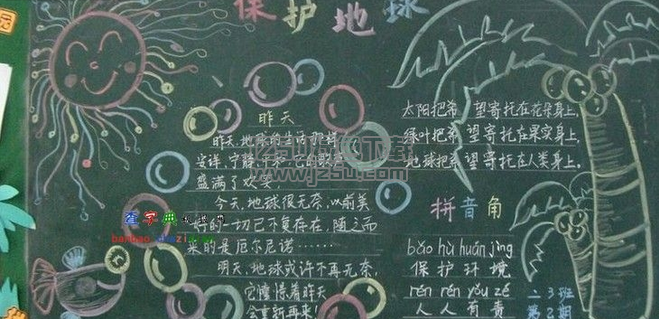 保护地球
昨天
昨天,地球的生活那样
安详、宁静
盛满了欢笑。
今天,地球很无奈,以前美
好的一切已不复存在,随之而
来的是厄尔尼诺……
明天,地球或许不再无奈,
它憧憬着昨天
会重新再来!
太阳把希 望寄托在花朵身上,
绿叶把希 望寄托在果实身上,
地球把希 望寄托在人类身上。
拼音角
bǎo hù huán jìng
保护环境
rén rén yǒu zé
人人有责
二3班
第2期
www.jz5u.com